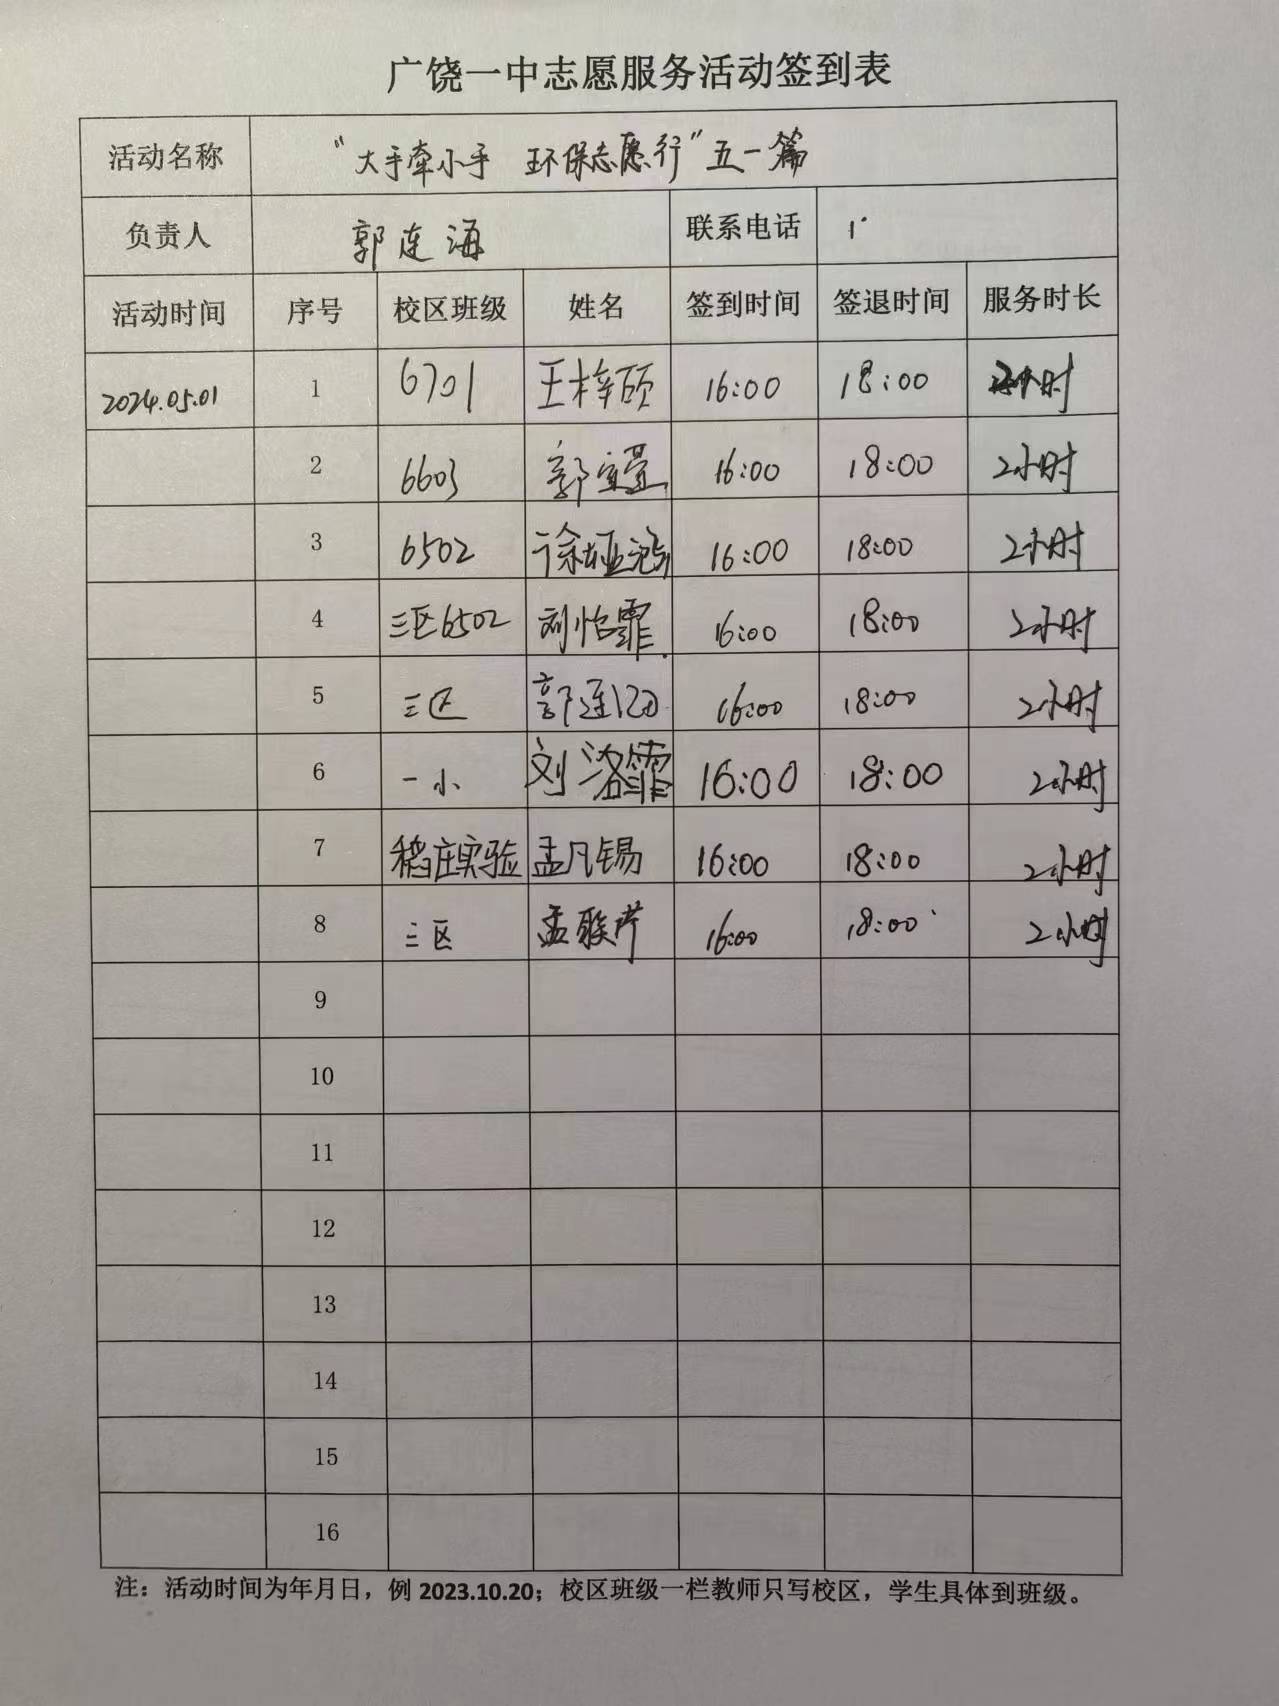 广饶一中志愿服务活动签到表
活动名称 “大手牵小手 环保志愿行”五一篇
负责人 郭连海 联系电话
活动时间 序号 校区班级 姓名 签到时间 签退时间 服务时长
2024.05.01 1 6701 王梓硕 16:00 18:00 2小时
2 6603 郭宜萱 16:00 18:00 2小时
3 6502 徐 16:00 18:00 2小时
4 三区6502 刘怡霏 16:00 18:00 2小时
5 三区 郭连 16:00 18:00 2小时
6 一小 刘洺霏 16:00 18:00 2小时
7 稻庄实验 孟凡锡 16:00 18:00 2小时
8 三区 孟联芹 16:00 18:00 2小时
9
10
11
12
13
14
15
16
注：活动时间为年月日，例 2023.10.20；校区班级一栏教师只写校区，学生具体到班级。